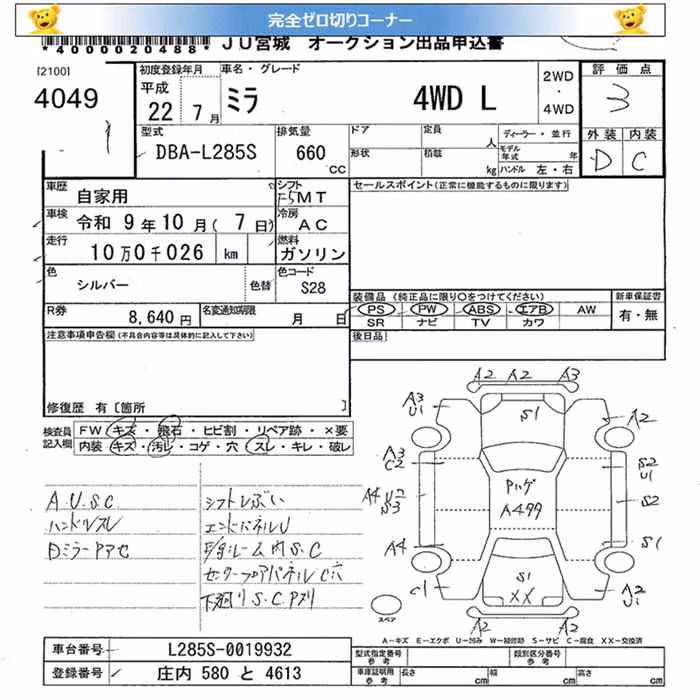 完全ゼロ切りコーナー
*4000020488* JU宮城 オークション出品申込書
[2100]
4049
初度登録年月 平成 22 7月
車名・グレード ミラ 4WD L
2WD ・ 4WD
評価点 3
型式 DBA-L285S
排気量 660 CC
ドア 定員 人
形状 積載 kg
ディーラー・並行
モデル年式 年
ハンドル 左・右
外装 内装
D C
車歴 自家用
シフト F5MT
セールスポイント(正常に機能するものに限ります)
車検 令和 9年10月( 7日)
冷房 AC
走行 10万0千026 km
燃料 ガソリン
色 シルバー 色替
色コード S28
R券 8,640円
名変通知期限 月 日
装備品(純正品に限り〇をつけてください)
新車保証書
PS PW ABS エアB AW
有・無
SR ナビ TV カワ
注意事項申告欄(不具合内容等は具体的に記入して下さい)
後日品
修復歴 有〔箇所 〕
検査員記入欄
FW キズ・飛石・ヒビ割・リペア跡・×要
内装 キズ・汚レ・コゲ・穴・スレ・キレ・破レ
A.U.S.C
ハンドルスレ
シフトレぶい
エンドパネルU
S.C
センターフロアパネルC穴
下廻りS.C
A2 A2 A3
A3 U1
S1
A2
A3 C2
S2 U1
A4
S3
A499
S2
A4
S1
C1
S1
XX
A2 U1
A2 A2
スペア
A-キズ E-エクボ U-凹み W-補修跡 S-サビ C-腐食 XX-交換済
車台番号 L285S-0019932
型式指定番号 参考
類別区分番号 参考
登録番号 庄内 580 と 4613
車庫証明用 参考 長さ cm 幅 cm 高さ cm